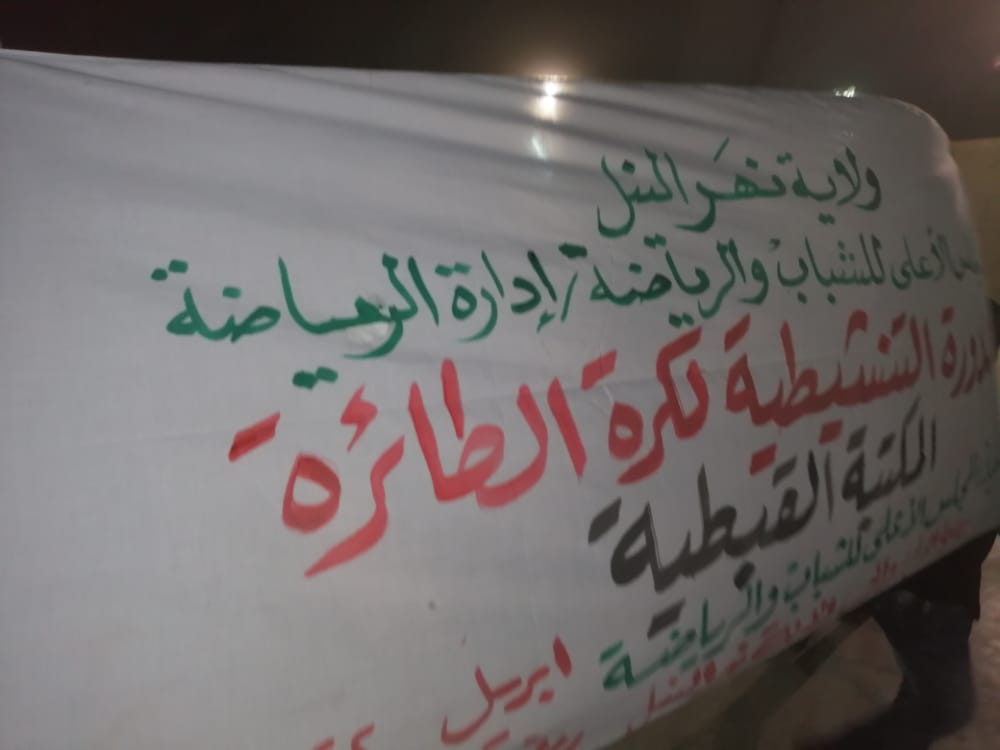 ولاية نهر النيل
الأعلى للشباب والرياضة / إدارة الرياضة
الدورة التنشيطية لكرة الطائرة
المكتبة القبطية
المجلس الأعلى للشباب والرياضة
ابريل